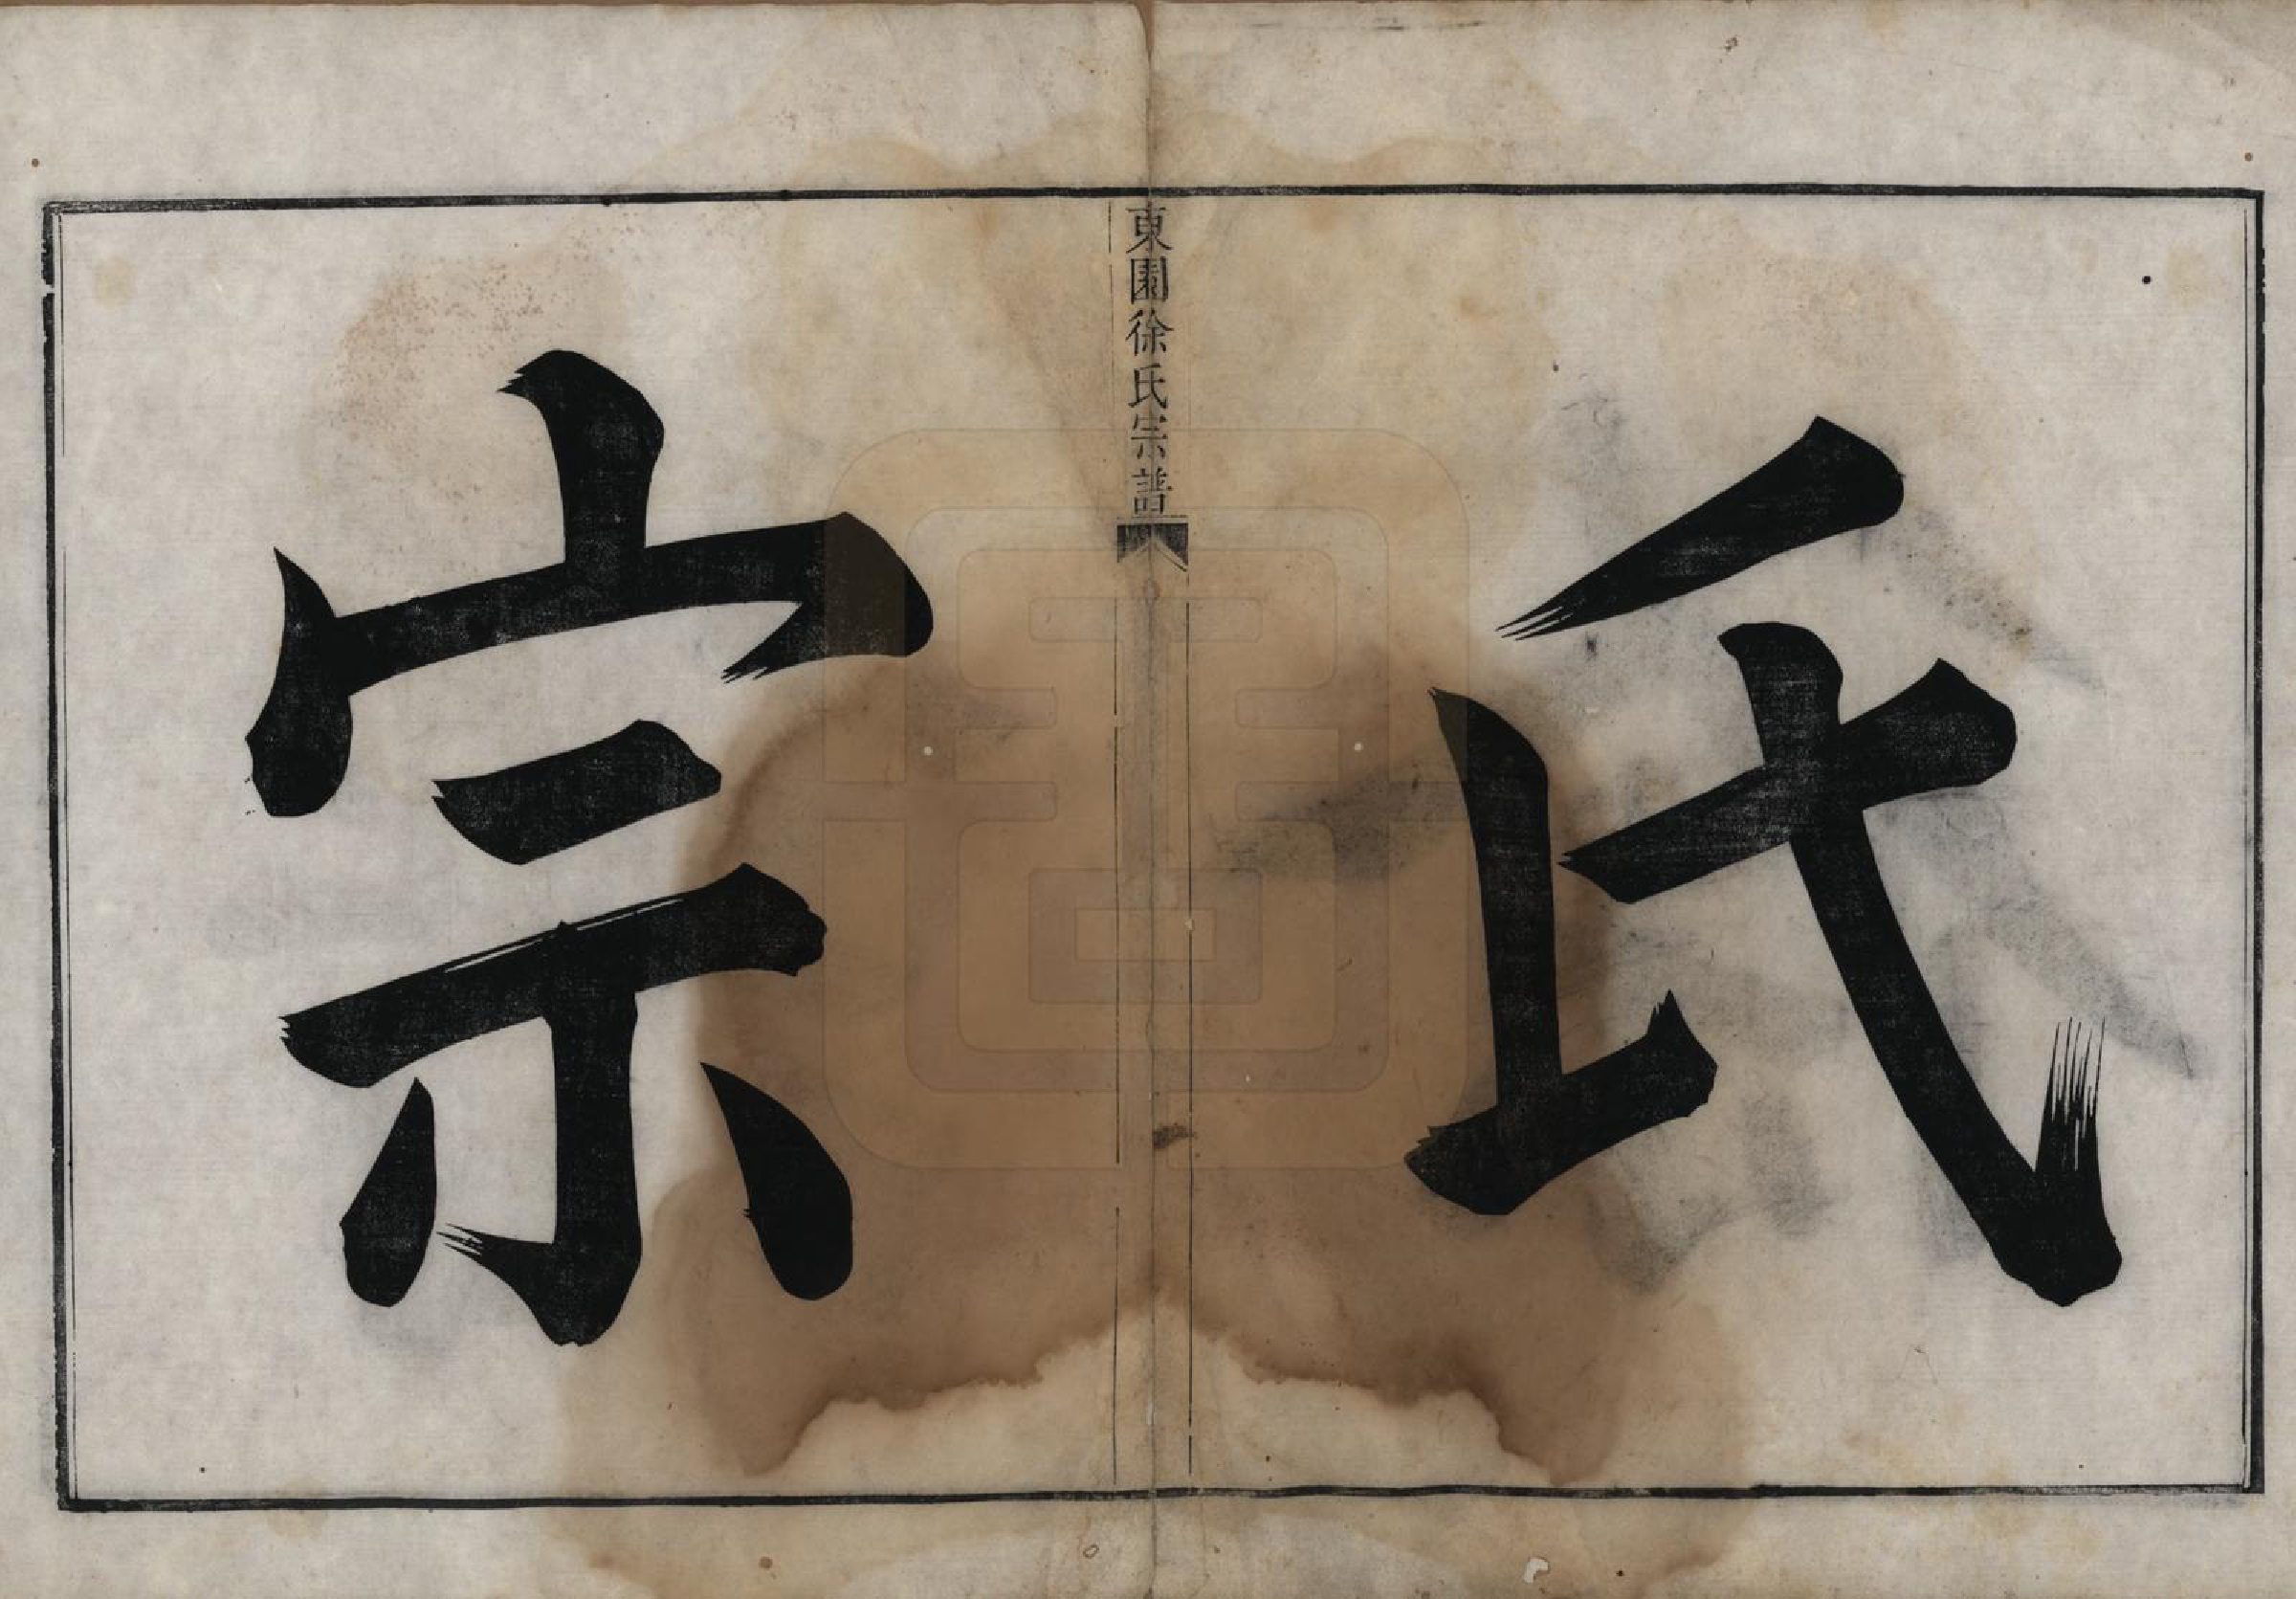 氏
東園徐氏宗譜
宗